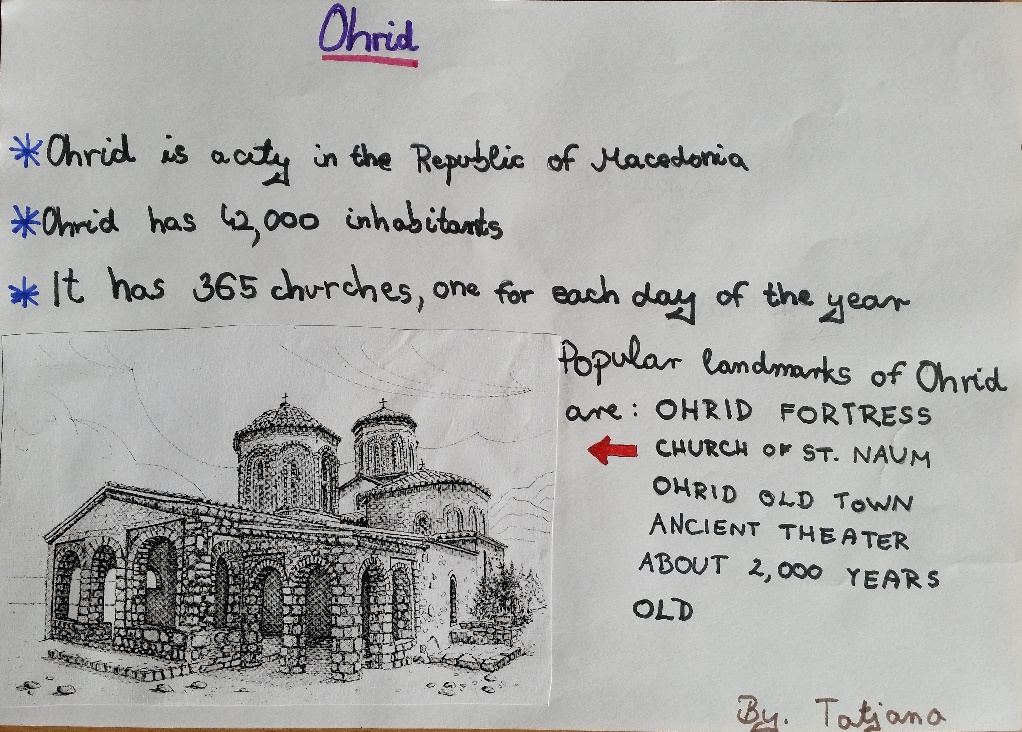 Ohrid
Ohrid is a city in the Republic of Macedonia
Ohrid has 42,000 inhabitants
It has 365 churches, one for each day of the year
Popular landmarks of Ohrid
are: OHRID FORTRESS
CHURCH OF ST. NAUM
OHRID OLD TOWN
ANCIENT THEATER
ABOUT 2,000 YEARS
OLD
By. Tatjana